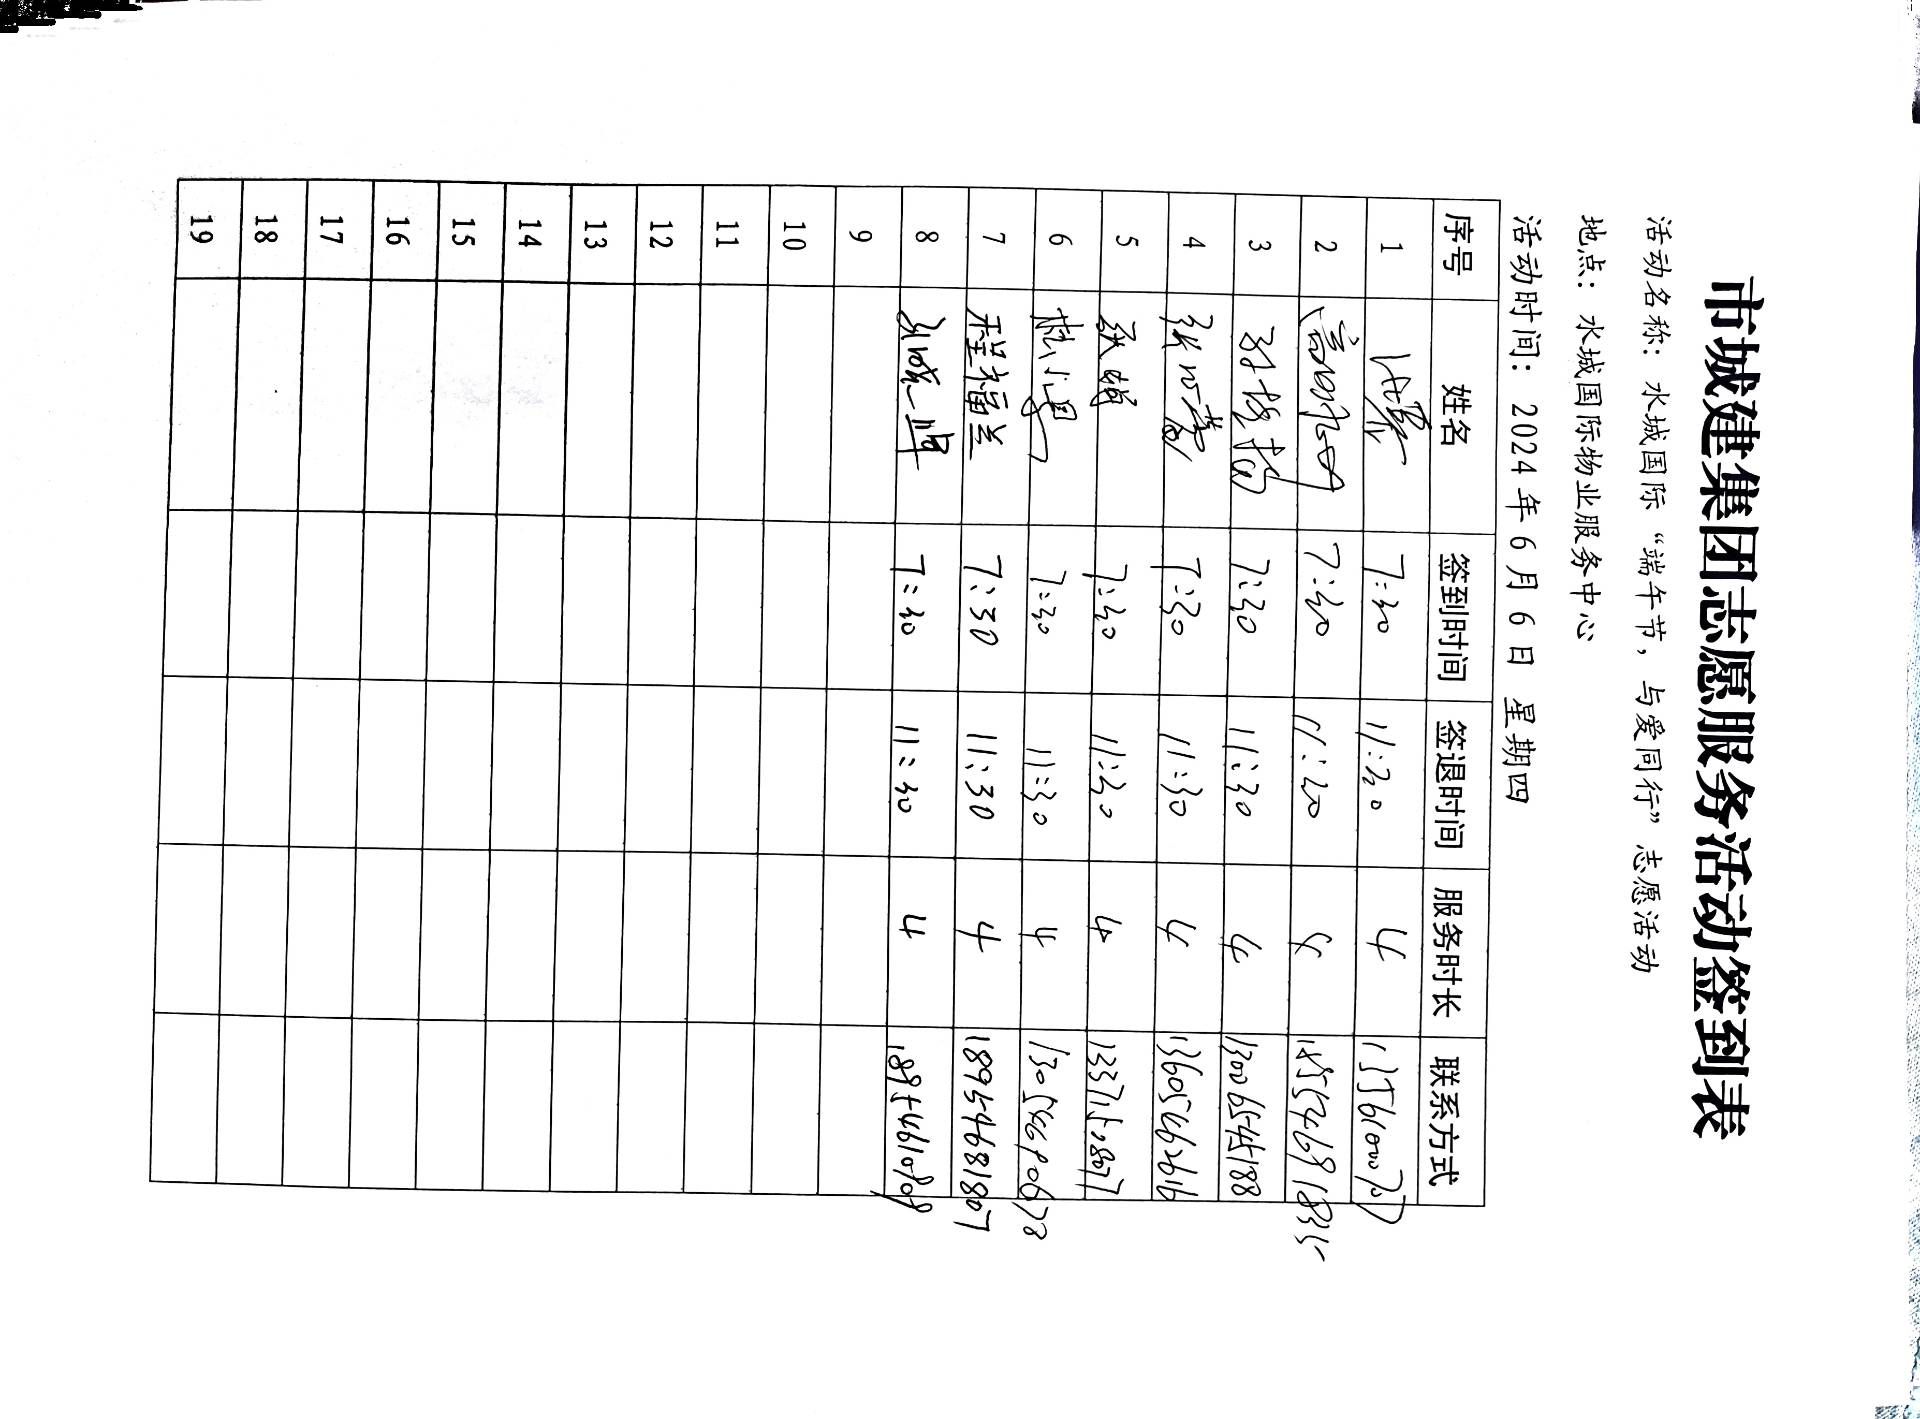 市城建集团志愿服务活动签到表
活动名称：水城国际“端午节，与爱同行”志愿活动
地点：水城国际物业服务中心
活动时间：2024年6月6日 星期四
序号 姓名 签到时间 签退时间 服务时长 联系方式
1 7:30 11:30 4
2 7:30 11:30 4 18554691835
3 7:30 11:30 4 13006545188
4 7:30 11:30 4 13605462616
5 7:30 11:30 4
6 7:30 11:30 4
7 程福兰 7:30 11:30 4 18954681807
8 7:30 11:30 4
9
10
11
12
13
14
15
16
17
18
19